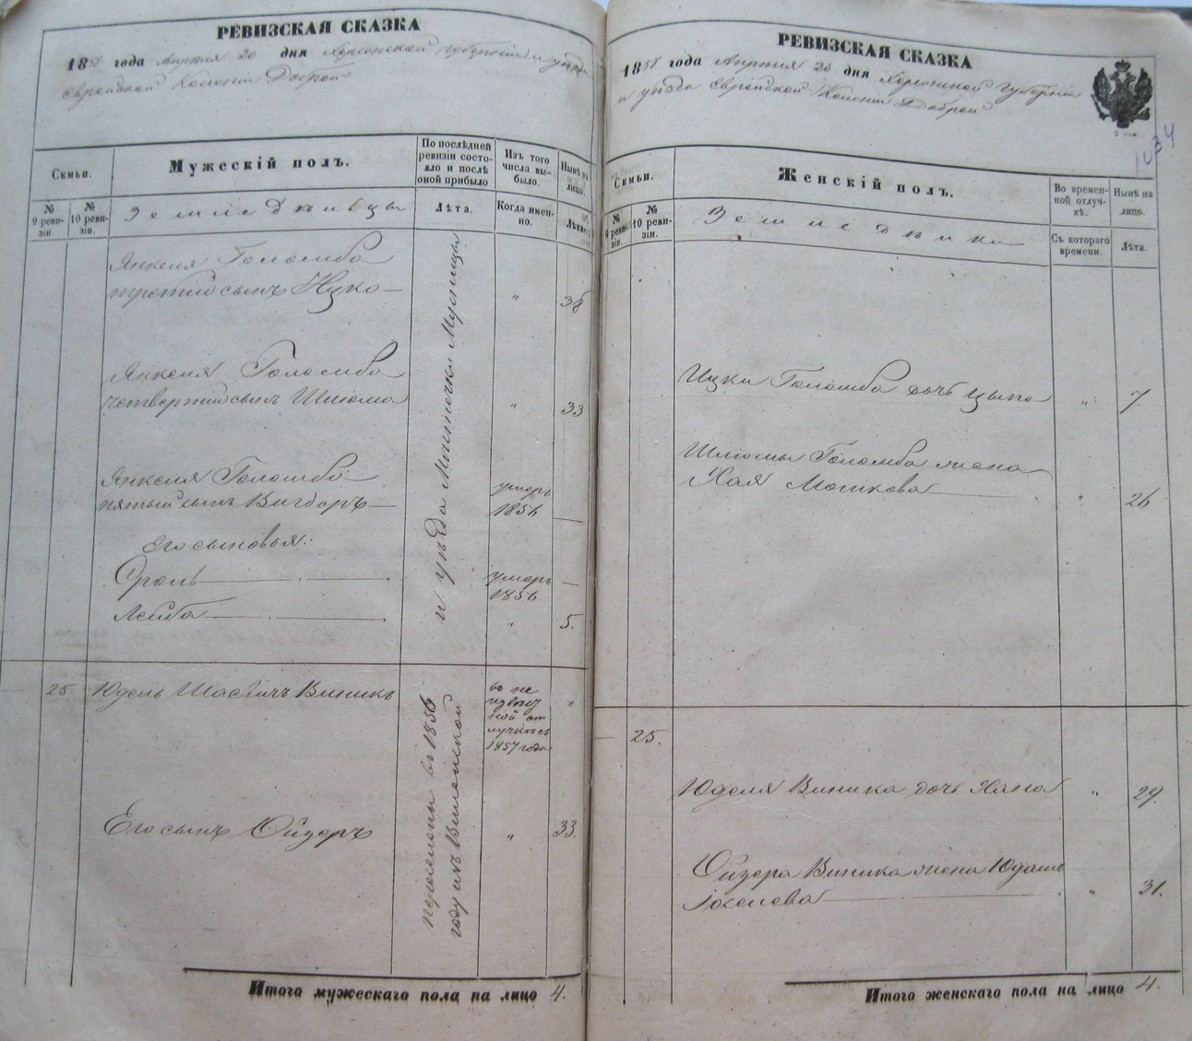 РЕВИЗСКАЯ СКАЗКА
1858 года Апреля 20 дня Херсонской Губернии и уезда
Еврейской Колонии Доброй
Семьи.
Мужескій полъ.
По послѣдней ревизіи состояло и послѣ оной прибыло
Изъ того числа выбыло.
Нынѣ на лицо.
№ 9 ревизіи.
№ 10 ревизіи.
Земледѣльцы
Лѣта.
Когда именно.
Лѣта.
Янкеля Голомба
третій сынъ Ицко — " 38
Янкеля Голомба
четвертый сынъ Шлiома " 33
Янкеля Голомба
пятый сынъ Вигдоръ — умеръ 1856 —
Его сыновья:
Сроль — умеръ 1856 —
Лейба — " 5.
и уѣзда Мѣстечка
25. Юдель Винникъ "
1857 года
Его сынъ Ойзеръ " 33.
въ 1856
году изъ Виленской
Итого мужескаго пола на лицо 4.
РЕВИЗСКАЯ СКАЗКА
1858 года Апреля 20 дня Херсонской Губернии
и уезда Еврейской Колонии Доброй
1034
Семьи.
Женскій полъ.
Во временной отлучкѣ.
Нынѣ на лицо.
№ 9 ревизіи.
№ 10 ревизіи.
Съ котораго времени.
Лѣта.
Ицки Голомба дочь Цыпа " 7.
Шлiомы Голомба жена
Хая Мошкова — " 26
25.
Юделя Винника дочь Хана " 29.
Ойзера Винника жена
Iоселева — " 31.
Итого женскаго пола на лицо 4.